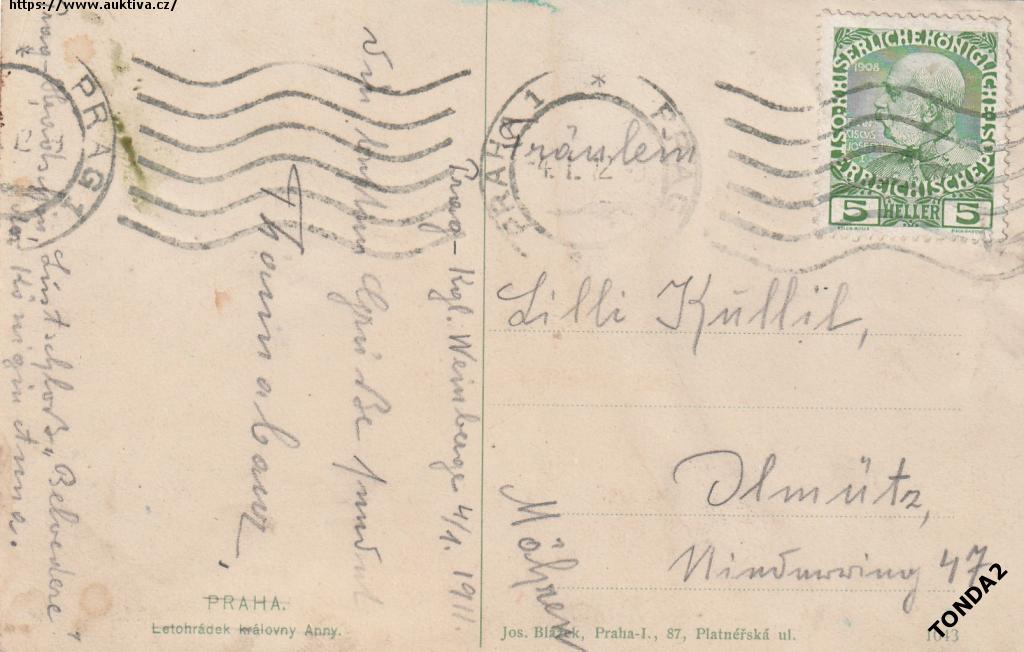 https://www.auktiva.cz/
Lustschloß „Belvedere“
Königin Anna.
Grüße sendet
Prag - Kgl. Weinberge 4/1. 1911.
PRAHA.
Letohrádek královny Anny.
PRAG 1
PRAHA 1
PRAG
4.I.12
1908
KAISERLICHE KÖNIGLICHE ÖSTERREICHISCHE POST
5 HELLER 5
Fräulein
Lilli Kullil,
Olmütz,
Niederring 47
Mähren
Jos. Blažek, Praha-I., 87, Platnéřská ul.
1043
TONDA2